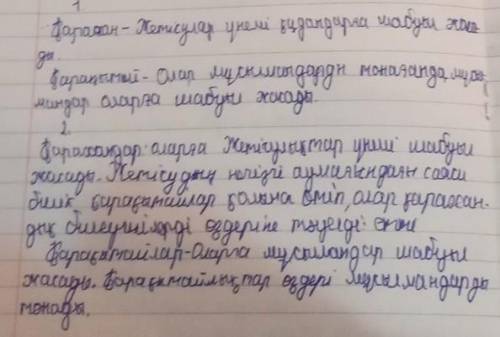 1
Қарахан - Жетісулар үнемі қидандарға шабуыл жаса-
ды.
Қарақытай - Олар мұсылмандарды тонағанда, мұсы-
мандар оларға шабуыл жасады.
2.
Қарахандар: оларға Жетісулықтар үнемі шабуыл
жасады. Жетісудың негізгі аумағындағы саяси
билік қарақытайлар қолына өтіп, олар қарахан-
дық билеушілерді өздеріне тәуелді етті
Қарақытайлар - Оларға мұсылмандар шабуыл
жасады. Қарақытайлықтар өздері мұсылмандарды
тонады.